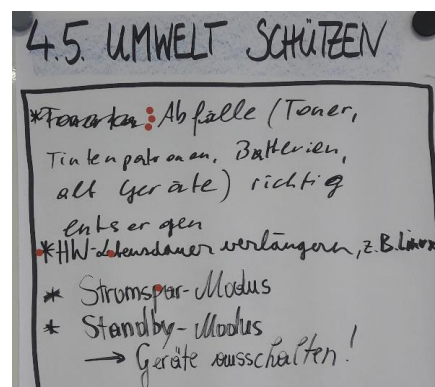 4.5. UMWELT SCHÜTZEN
* Abfälle (Toner,
Tintenpatronen, Batterien,
alt Geräte) richtig
entsorgen
*HW-Lebensdauer verlängern, z.B. Linux
* Stromspar-Modus
* Standby-Modus
→ Geräte ausschalten!